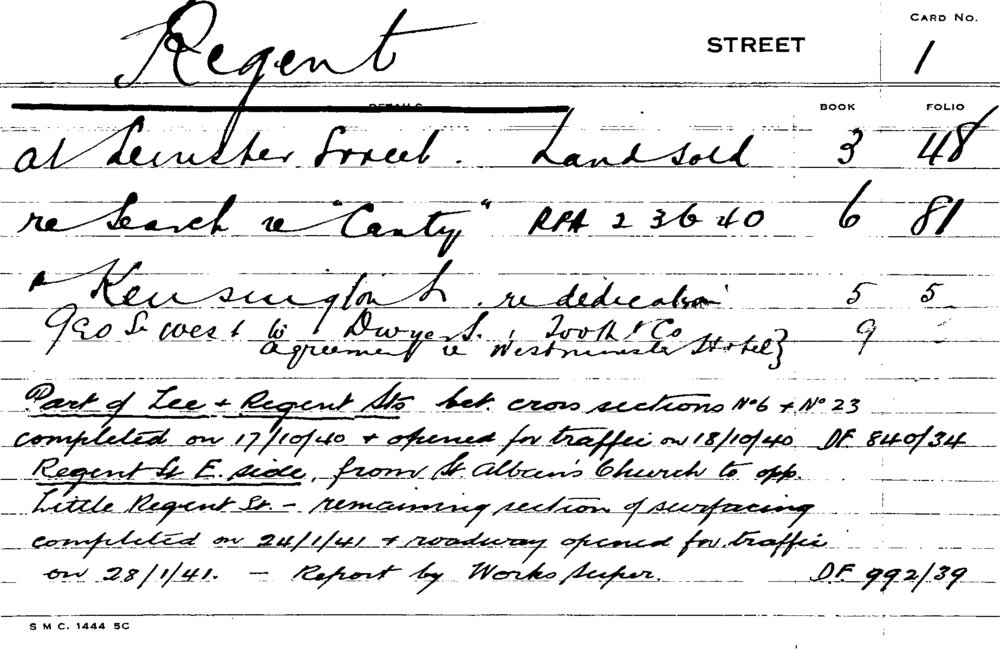 Regent STREET CARD No. 1
DETAILS BOOK FOLIO
at Leinster Street. Land sold 3 48
re Search re "Canty" RPA 2 3640 6 81
" Kensington St. re dedication 5 5
Geo St West to Dwyer St, Tooth & Co 9
agreement re Westminster Hotel}
Part of Lee + Regent Sts bet. cross sections No 6 + No 23
completed on 17/10/40 + opened for traffic on 18/10/40 DF 840/34
Regent St E. side, from St. Alban's Church to opp.
Little Regent St. - remaining section of surfacing
completed on 24/1/41 + roadway opened for traffic
on 28/1/41. - Report by Works Super. DF 992/39
S M C. 1444 5C